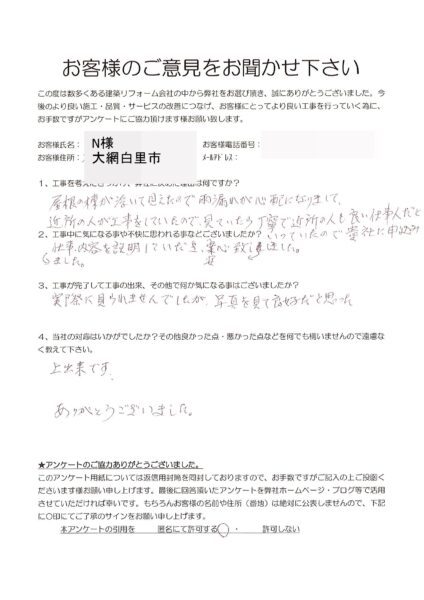 お客様のご意見をお聞かせ下さい
この度は数多くある建築リフォーム会社の中から弊社をお選び頂き、誠にありがとうございました。今
後のより良い施工・品質・サービスの改善につなげ、お客様にとってより良い工事を行っていく為に、
お手数ですがアンケートにご協力頂けます様お願い致します。
お客様氏名: N様
お客様電話番号:
お客様住所: 大網白里市
ﾒｰﾙｱﾄﾞﾚｽ:
1、工事を考えたきっかけ、弊社に決めた理由は何ですか?
屋根の棟が浮いて見えたので雨漏れが心配になりまして、
近所の人が工事をしていたので、見ていたら丁寧で近所の人も良い仕事人だと
いっていたので貴社に申込み
しました。
2、工事中に気になる事や不快に思われる事などございましたか?
仕事内容を説明していただき、安心致しました。
3、工事が完了して工事の出来、その他で何か気になる事はございましたか?
実際に見られませんでしたが、写真を見て良好だと思った
4、当社の対応はいかがでしたか?その他良かった点・悪かった点などを何でも構いませんので遠慮な
く教えて下さい。
上出来です。
ありがとうございました。
★アンケートのご協力ありがとうございました。
このアンケート用紙については返信用封筒を同封しておりますので、お手数ですがご記入の上ご投函く
ださいます様お願い申し上げます。最後に回答頂いたアンケートを弊社ホームページ・ブログ等で活用
させていただければ幸いです。もちろんお客様の名前や住所(番地)は絶対に公表しませんので、下記
に〇印にてご了承のサインをお願い申し上げます。
本アンケートの引用を 匿名にて許可する ・ 許可しない